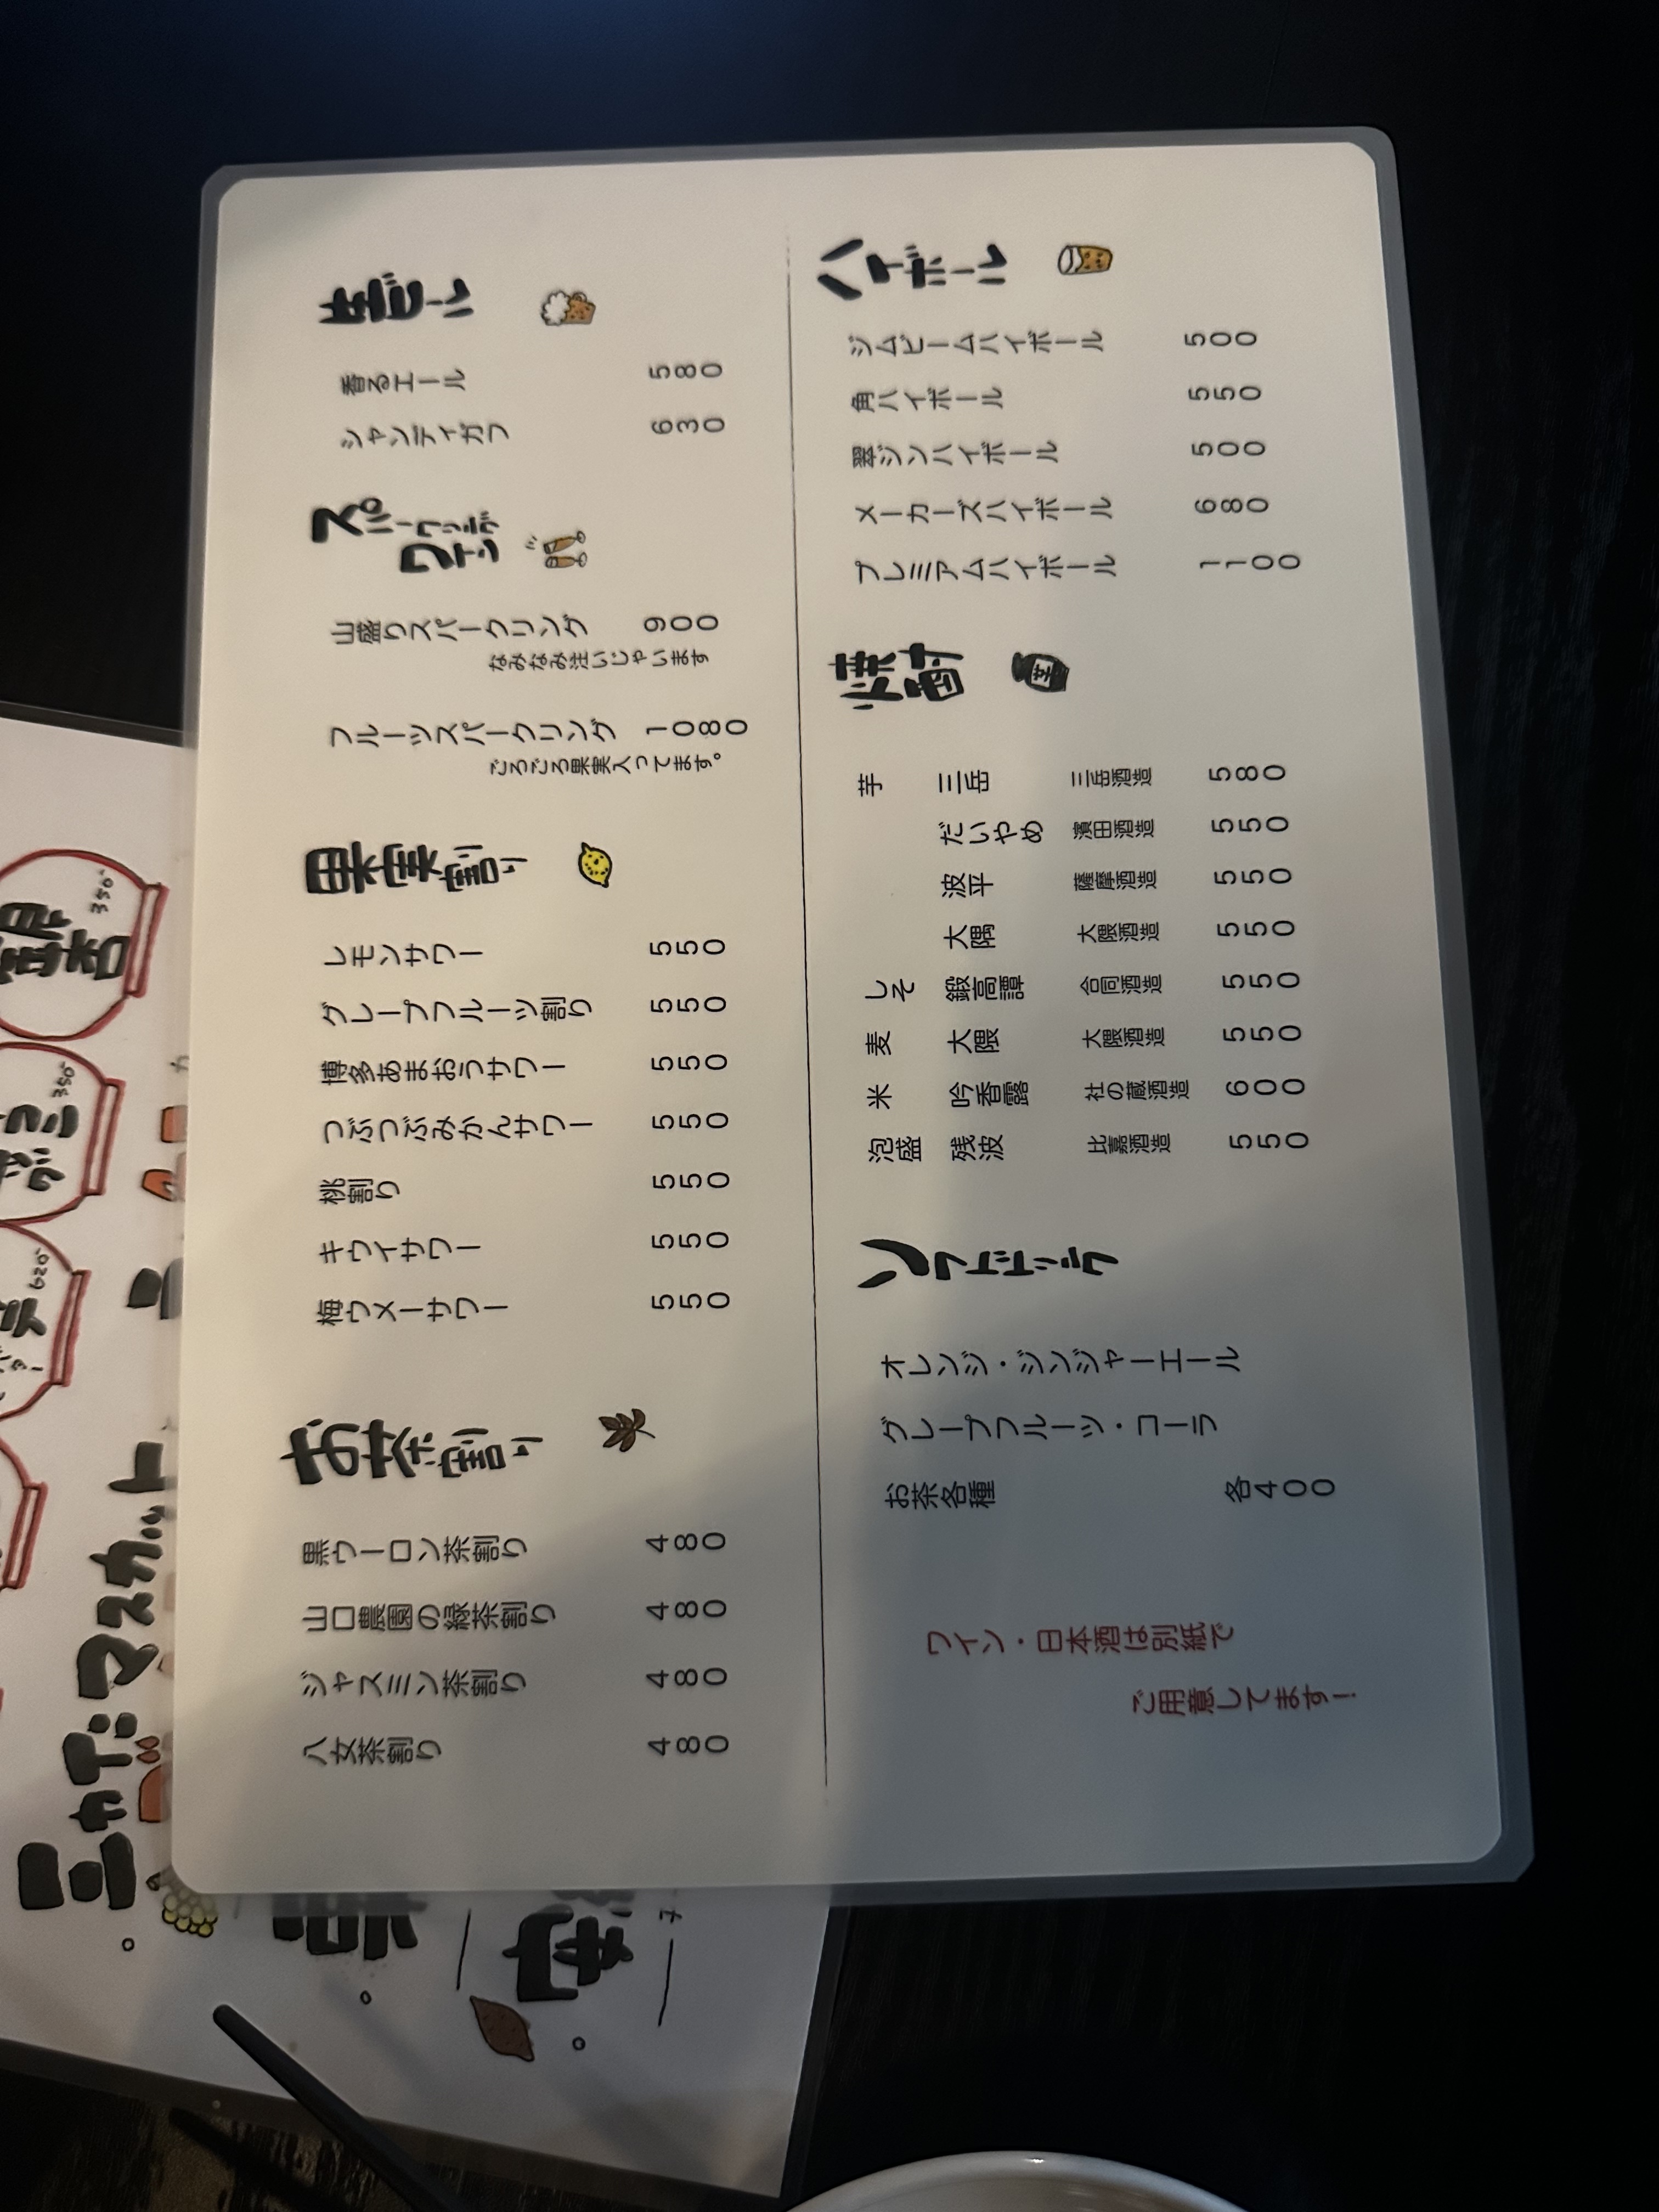 生ビール
香るエール 580
シャンディガフ 630
スパークリング
ワイン
山盛りスパークリング 900
なみなみ注いじゃいます
フルーツスパークリング 1080
ごろごろ果実入ってます。
果実割り
レモンサワー 550
グレープフルーツ割り 550
博多あまおうサワー 550
つぶつぶみかんサワー 550
桃割り 550
キウイサワー 550
梅ウメーサワー 550
お茶割り
黒ウーロン茶割り 480
山口農園の緑茶割り 480
ジャスミン茶割り 480
八女茶割り 480
ハイボール
ジムビームハイボール 500
角ハイボール 550
翠ジンハイボール 500
メーカーズハイボール 680
プレミアムハイボール 1100
焼酎
芋
芋 三岳 三岳酒造 580
だいやめ 濱田酒造 550
波平 薩摩酒造 550
大隅 大隈酒造 550
しそ 鍛高譚 合同酒造 550
麦 大隈 大隈酒造 550
米 吟香露 社の蔵酒造 600
泡盛 残波 比嘉酒造 550
ソフトドリンク
オレンジ・ジンジャーエール
グレープフルーツ・コーラ
お茶各種 各400
ワイン・日本酒は別紙で
ご用意してます！
350
350
620
マスカット